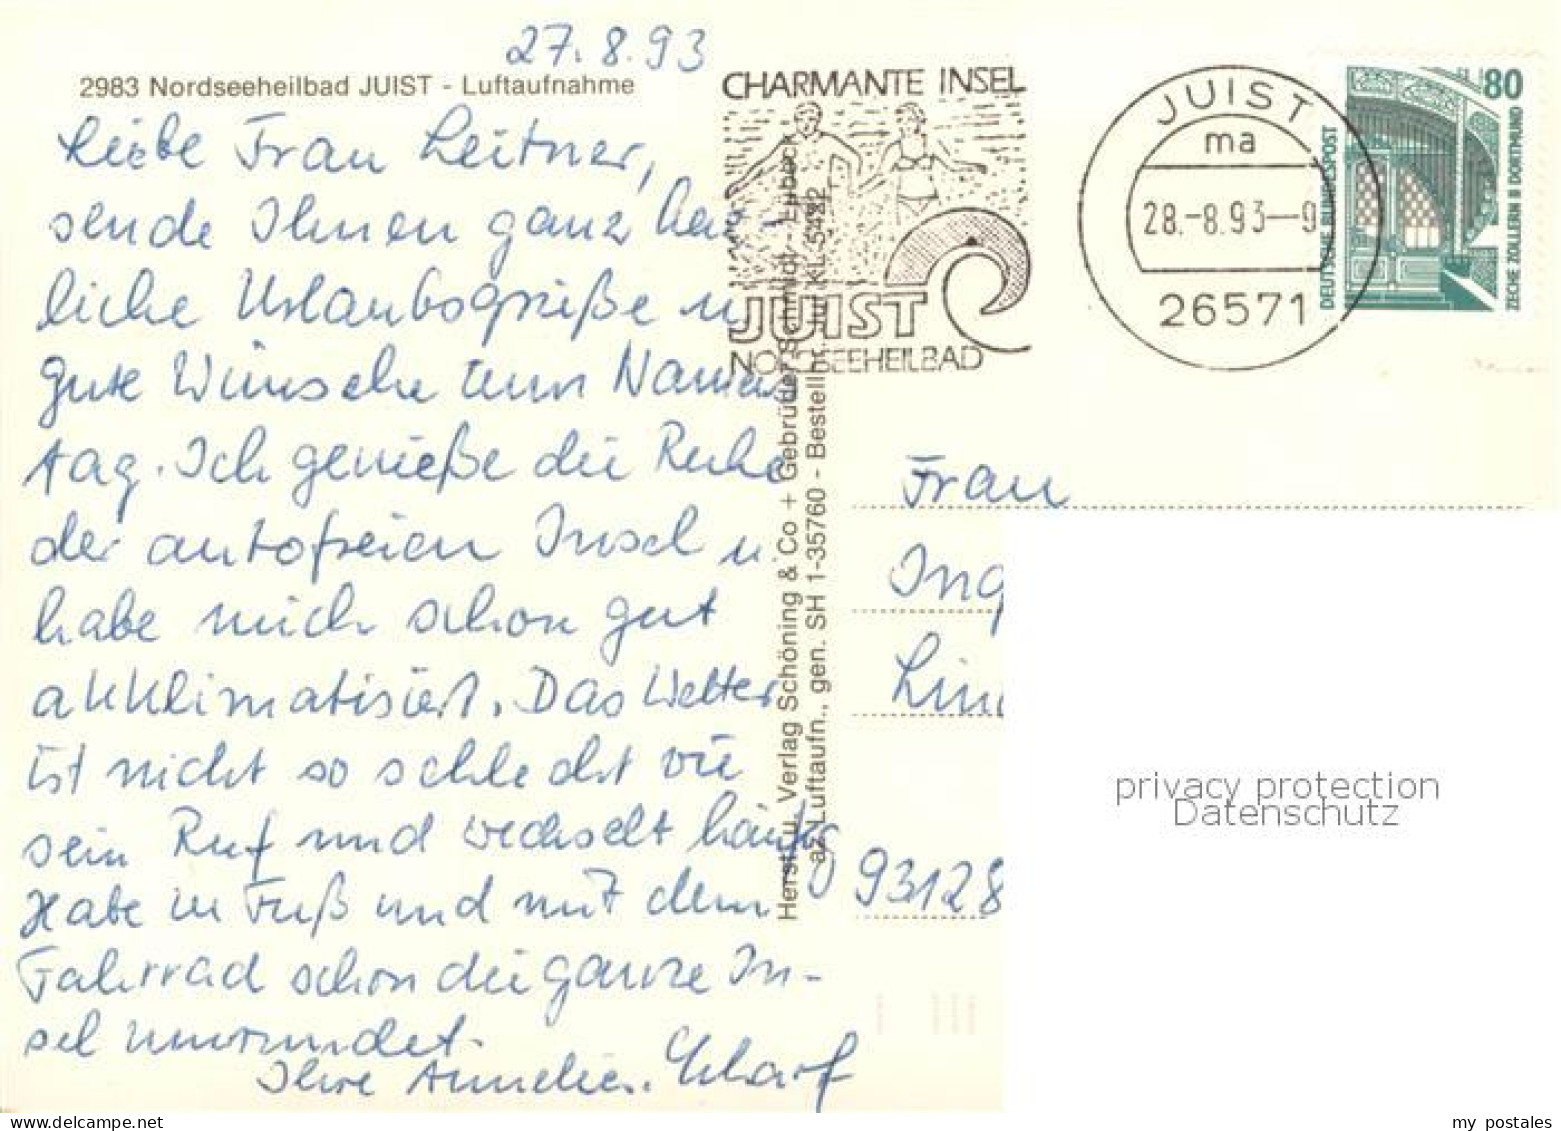 27.8.93
2983 Nordseeheilbad JUIST - Luftaufnahme
Liebe Frau Leitner,
sende Ihnen ganz herz-
liche Urlaubsgrüße u.
gute Wünsche zum Namens
tag. Ich genieße die Ruhe
der autofreien Insel u.
habe mich schon gut
akklimatisiert. Das Wetter
ist nicht so schlecht wie
sein Ruf und wechselt häufig
Habe zu Fuß und mit dem
Fahrrad schon die ganze In-
sel umrundet.
Ihre Annelies. Scharf
Herst. u. Verlag Schöning & Co + Gebrüder Schmidt - Lübeck
az/Luftaufn., gen. SH 1-35760 - Bestellnr. Jui KL 5422
CHARMANTE INSEL
JUIST
NORDSEEHEILBAD
JUIST
ma
28.-8.93--9
26571
80
DEUTSCHE BUNDESPOST
ZECHE ZOLLERN II DORTMUND
Frau
Ing
Lin
93128
privacy protection
Datenschutz
my postales